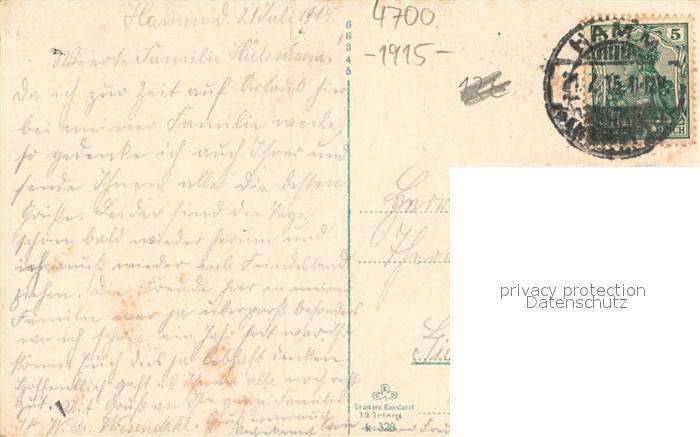 Hamm d. 21 Juli 1915.
Weerte Familie Hülsmann.
Da ich zur Zeit auf Urlaub hier
bei meiner Familie weile,
so gedenke ich auch Ihrer und
sende Ihnen alle die besten
Grüße. Leider sind die Tage
schon bald wieder herum und
ich muß wieder ins Feindesland
ziehen. Die Freude hier in meiner
Familie war ja übergroß besonders
wo ich schon ein Jahr fort war
ja lebhaft denken
Hoffentlich geht es Ihnen alle noch recht
gut. Mit Gruß an Ihre ganze Familie
Wilh.
Gruß
66345
4700
-1915-
HAMM
21.7.15.11-12
5
REICH
Herrn
Cramers Kunstanst.
Dortmund
k 328
privacy protection
Datenschutz